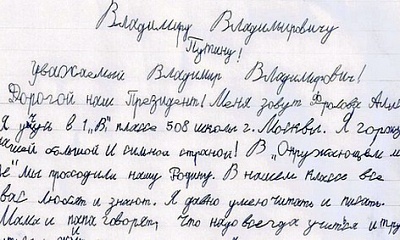 Владимиру Владимировичу
Путину!
Уважаемый Владимир Владимирович!
Дорогой наш Президент! Меня зовут Фролова
Я учусь в 1 „В" классе 508 школы г. Москвы. Я
большой и сильной страной! В „Окружающем
мы проходили нашу Родину. В нашем классе все
вас любят и знают. Я давно умею читать и писать.
Мама и папа говорят, что надо всегда учиться и